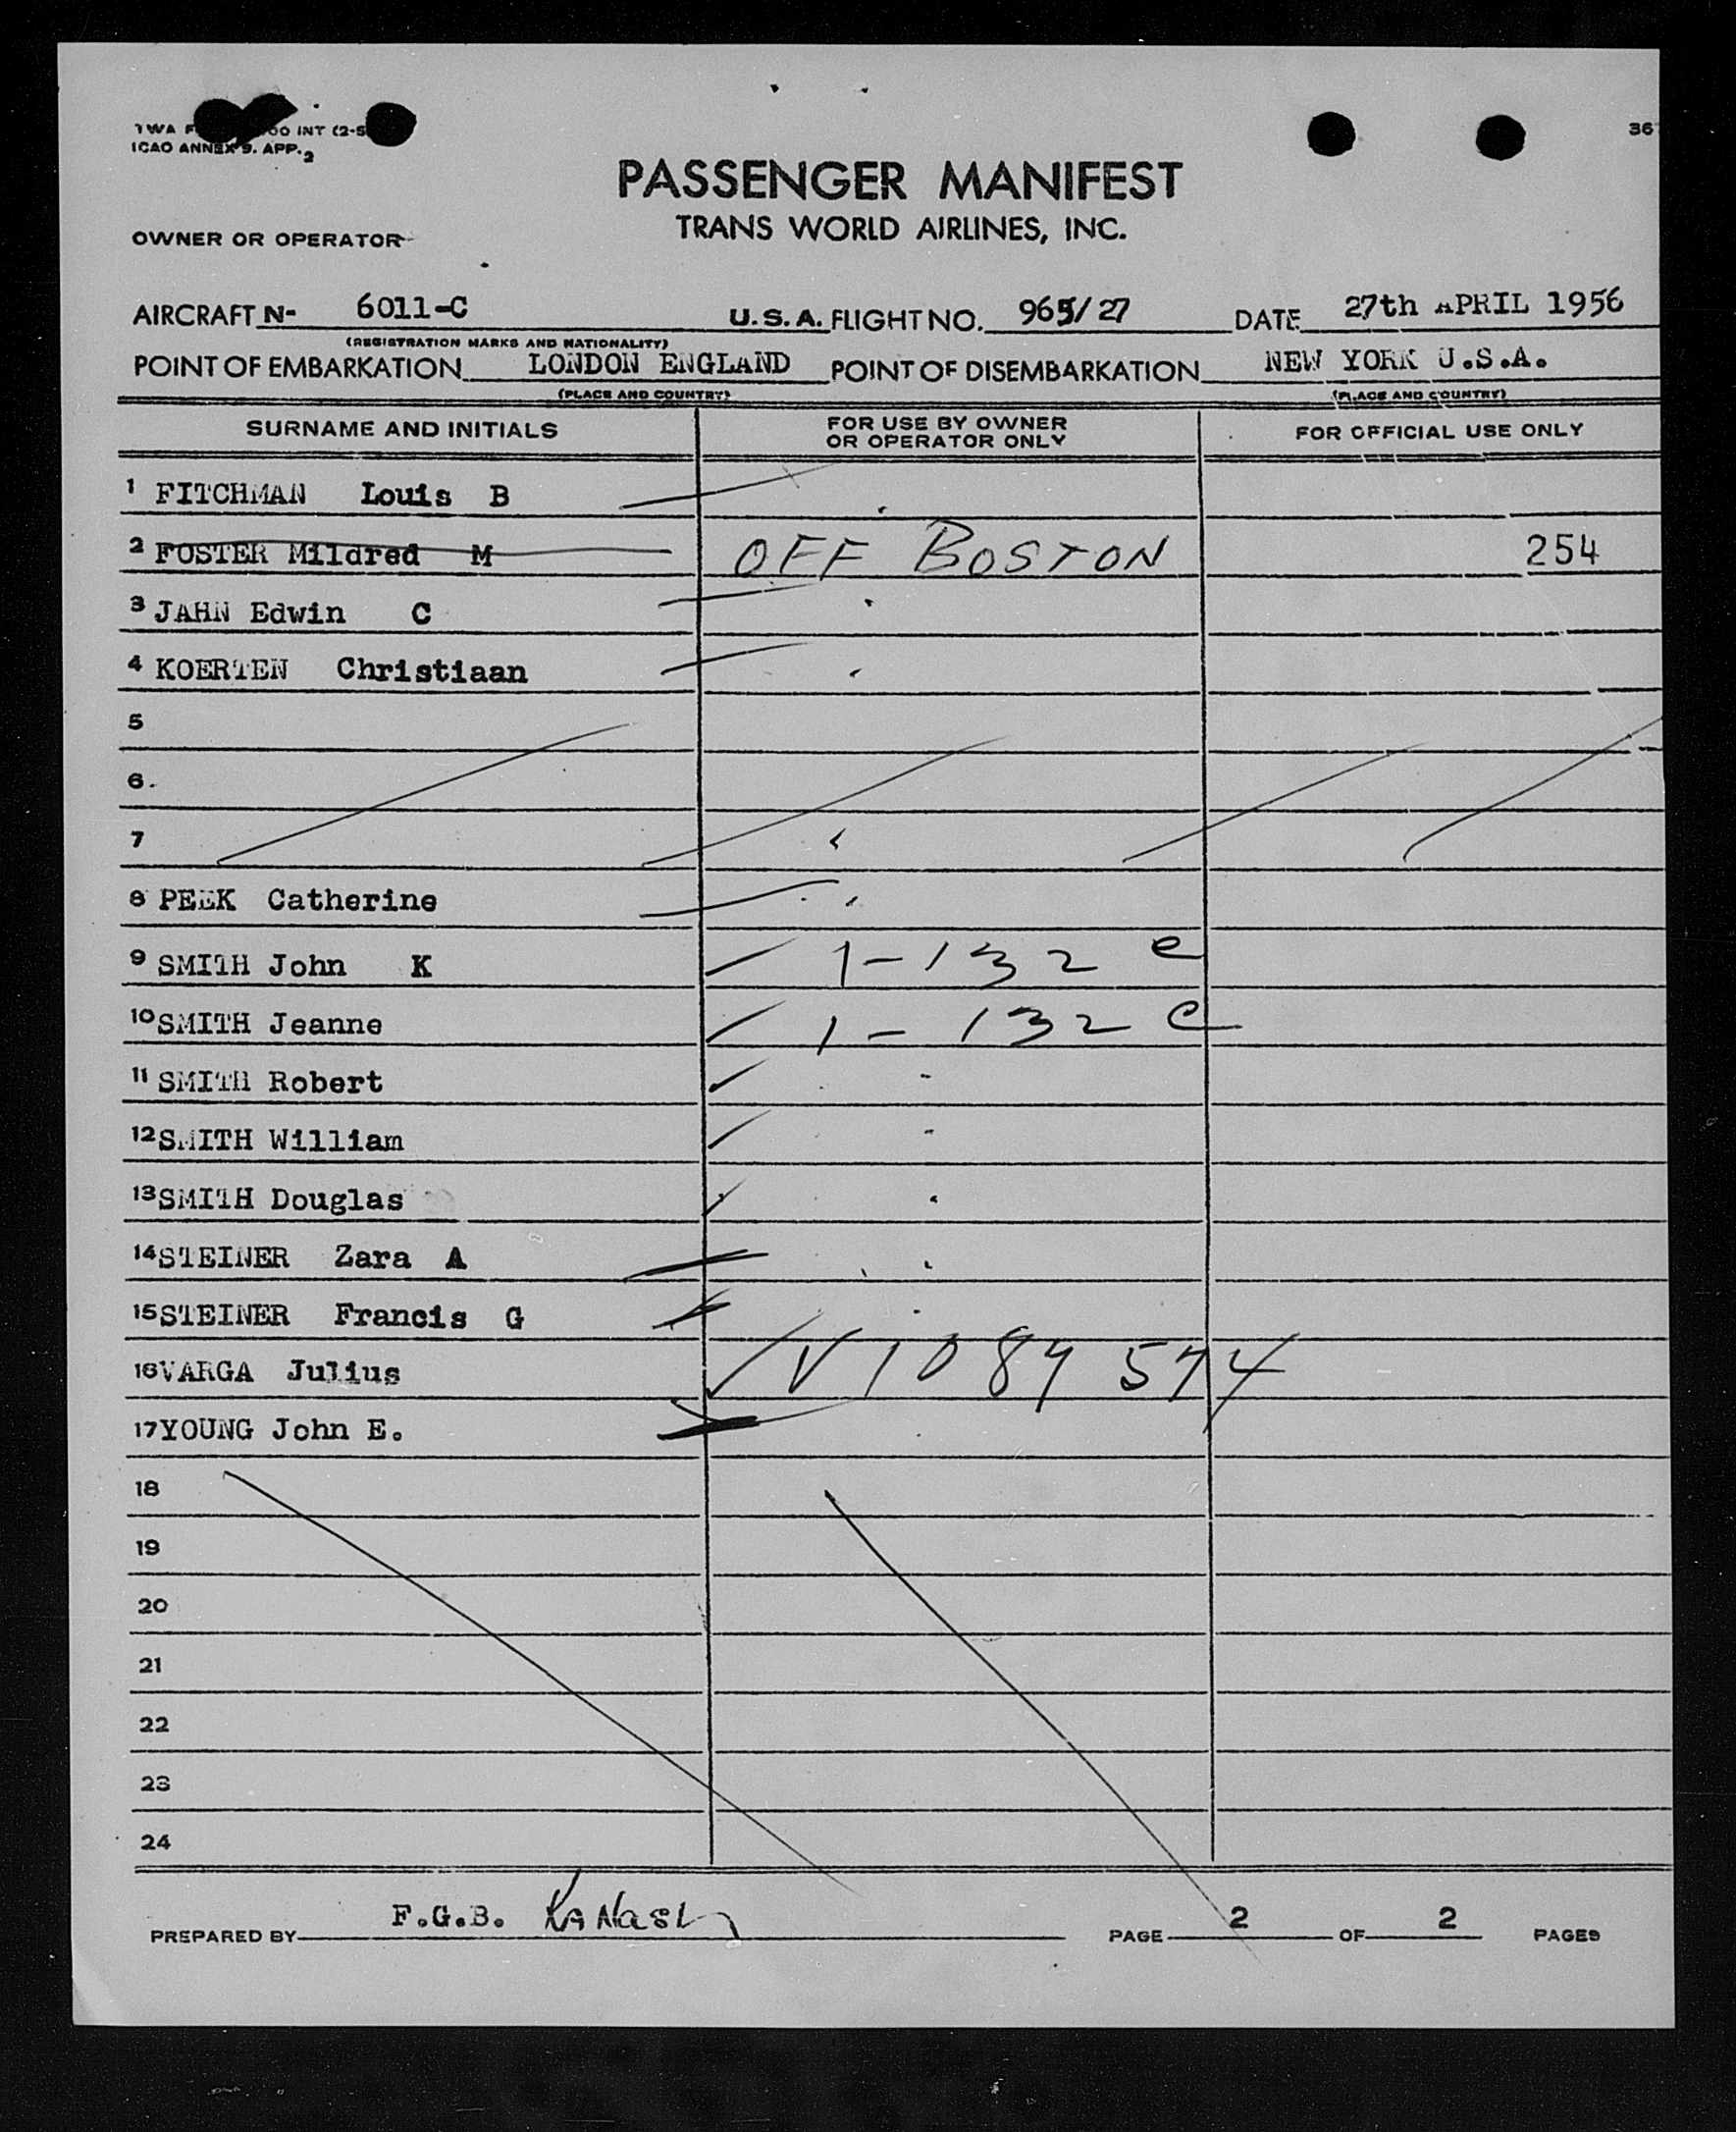 TWA F 00 INT (2-5
ICAO ANNEX 9. APP. 2
36
PASSENGER MANIFEST
TRANS WORLD AIRLINES, INC.
OWNER OR OPERATOR
AIRCRAFT N- 6011-C U.S.A. FLIGHT NO. 965/27 DATE 27th APRIL 1956
(REGISTRATION MARKS AND NATIONALITY)
POINT OF EMBARKATION LONDON ENGLAND POINT OF DISEMBARKATION NEW YORK U.S.A.
(PLACE AND COUNTRY) (PLACE AND COUNTRY)
SURNAME AND INITIALS FOR USE BY OWNER OR OPERATOR ONLY FOR OFFICIAL USE ONLY
1 FITCHMAN Louis B
2 FOSTER Mildred M OFF BOSTON 254
3 JAHN Edwin C
4 KOERTEN Christiaan
5
6.
7
8 PEEK Catherine
9 SMITH John K 1-132 e
10 SMITH Jeanne 1-132 e
11 SMITH Robert
12 SMITH William
13 SMITH Douglas
14 STEINER Zara A
15 STEINER Francis G
16 VARGA Julius V1089574
17 YOUNG John E.
18
19
20
21
22
23
24
PREPARED BY F.G.B. PAGE 2 OF 2 PAGES